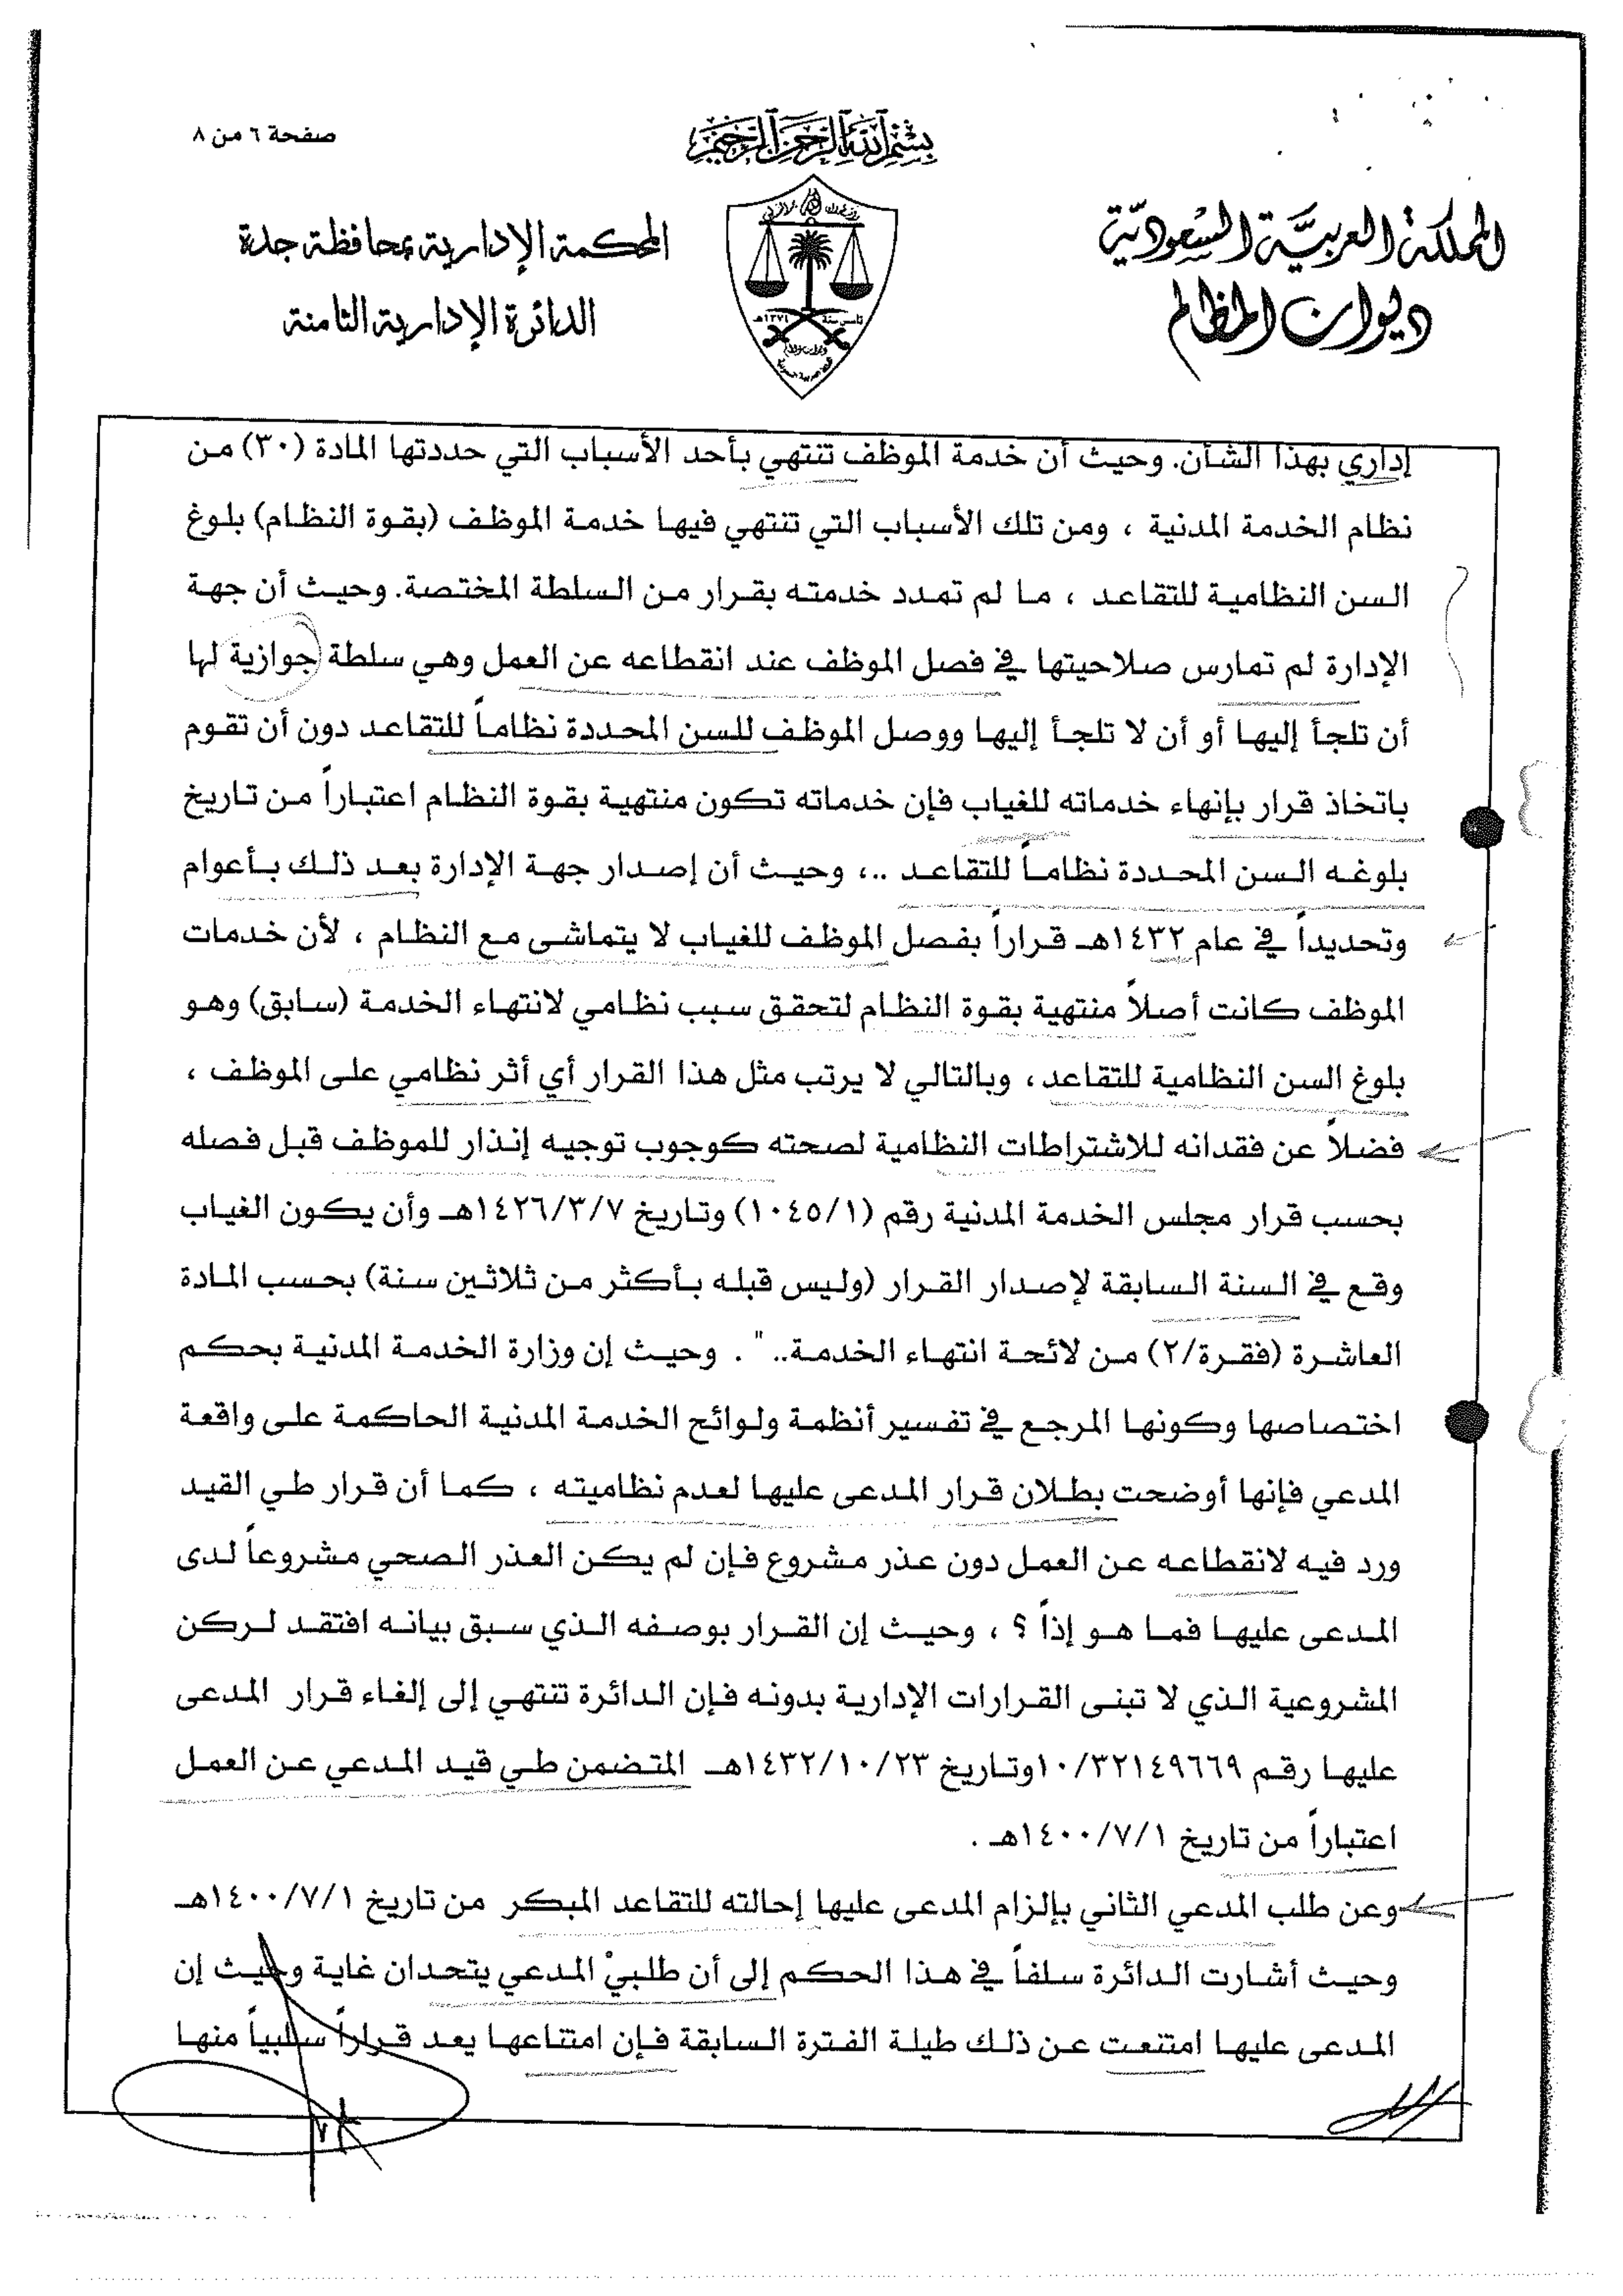 صفحة ٦ من ٨
بسم الله الرحمن الرحيم
المملكة العربية السعودية
ديوان المظالم
المحكمة الإدارية بمحافظة جدة
الدائرة الإدارية الثامنة
إداري بهذا الشأن. وحيث أن خدمة الموظف تنتهي بأحد الأسباب التي حددتها المادة (٣٠) من
نظام الخدمة المدنية ، ومن تلك الأسباب التي تنتهي فيها خدمة الموظف (بقوة النظام) بلوغ
السن النظامية للتقاعد ، ما لم تمدد خدمته بقرار من السلطة المختصة. وحيث أن جهة
الإدارة لم تمارس صلاحيتها في فصل الموظف عند انقطاعه عن العمل وهي سلطة جوازية لها
أن تلجأ إليها أو أن لا تلجأ إليها ووصل الموظف للسن المحددة نظاماً للتقاعد دون أن تقوم
باتخاذ قرار بإنهاء خدماته للغياب فإن خدماته تكون منتهية بقوة النظام اعتباراً من تاريخ
بلوغه السن المحددة نظاماً للتقاعد ..، وحيث أن إصدار جهة الإدارة بعد ذلك بأعوام
وتحديداً في عام ١٤٣٢هـ قراراً بفصل الموظف للغياب لا يتماشى مع النظام ، لأن خدمات
الموظف كانت أصلاً منتهية بقوة النظام لتحقق سبب نظامي لانتهاء الخدمة (سابق) وهو
بلوغ السن النظامية للتقاعد ، وبالتالي لا يرتب مثل هذا القرار أي أثر نظامي على الموظف ،
فضلاً عن فقدانه للاشتراطات النظامية لصحته كوجوب توجيه إنذار للموظف قبل فصله
بحسب قرار مجلس الخدمة المدنية رقم (١٠٤٥/١) وتاريخ ١٤٢٦/٣/٧هـ وأن يكون الغياب
وقع في السنة السابقة لإصدار القرار (وليس قبله بأكثر من ثلاثين سنة) بحسب المادة
العاشرة (فقرة/٢) من لائحة انتهاء الخدمة..". وحيث إن وزارة الخدمة المدنية بحكم
اختصاصها وكونها المرجع في تفسير أنظمة ولوائح الخدمة المدنية الحاكمة على واقعة
المدعي فإنها أوضحت بطلان قرار المدعى عليها لعدم نظاميته ، كما أن قرار طي القيد
ورد فيه لانقطاعه عن العمل دون عذر مشروع فإن لم يكن العذر الصحي مشروعاً لدى
المدعى عليها فما هو إذاً ؟ ، وحيث إن القرار بوصفه الذي سبق بيانه افتقد لركن
المشروعية الذي لا تبنى القرارات الإدارية بدونه فإن الدائرة تنتهي إلى إلغاء قرار المدعى
عليها رقم ١٠/٣٢١٤٩٦٦٩وتاريخ ١٤٣٢/١٠/٢٣هـ المتضمن طي قيد المدعي عن العمل
اعتباراً من تاريخ ١٤٠٠/٧/١هـ .
وعن طلب المدعي الثاني بإلزام المدعى عليها إحالته للتقاعد المبكر من تاريخ ١٤٠٠/٧/١هـ
وحيث أشارت الدائرة سلفاً في هذا الحكم إلى أن طلبيْ المدعي يتحدان غاية وحيث إن
المدعى عليها امتنعت عن ذلك طيلة الفترة السابقة فإن امتناعها يعد قراراً سلبياً منها